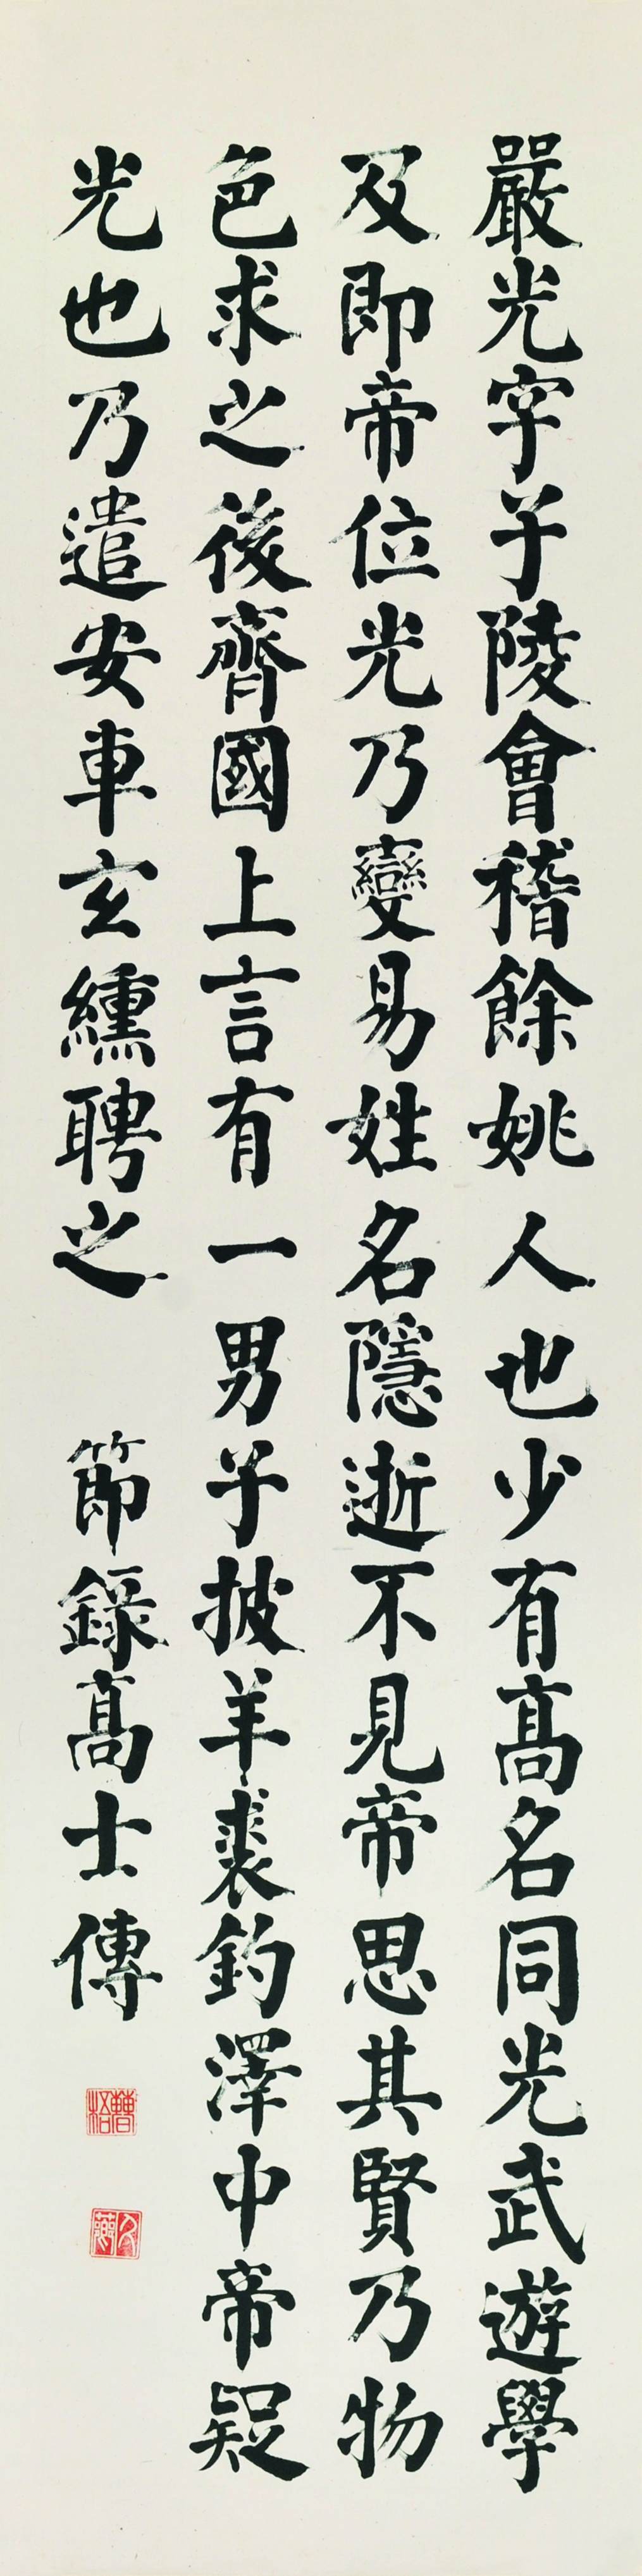 嚴光字子陵會稽餘姚人也少有高名同光武遊學
及即帝位光乃變易姓名隱逝不見帝思其賢乃物
色求之後齊國上言有一男子披羊裘釣澤中帝疑
光也乃遣安車玄纁聘之 節錄高士傳